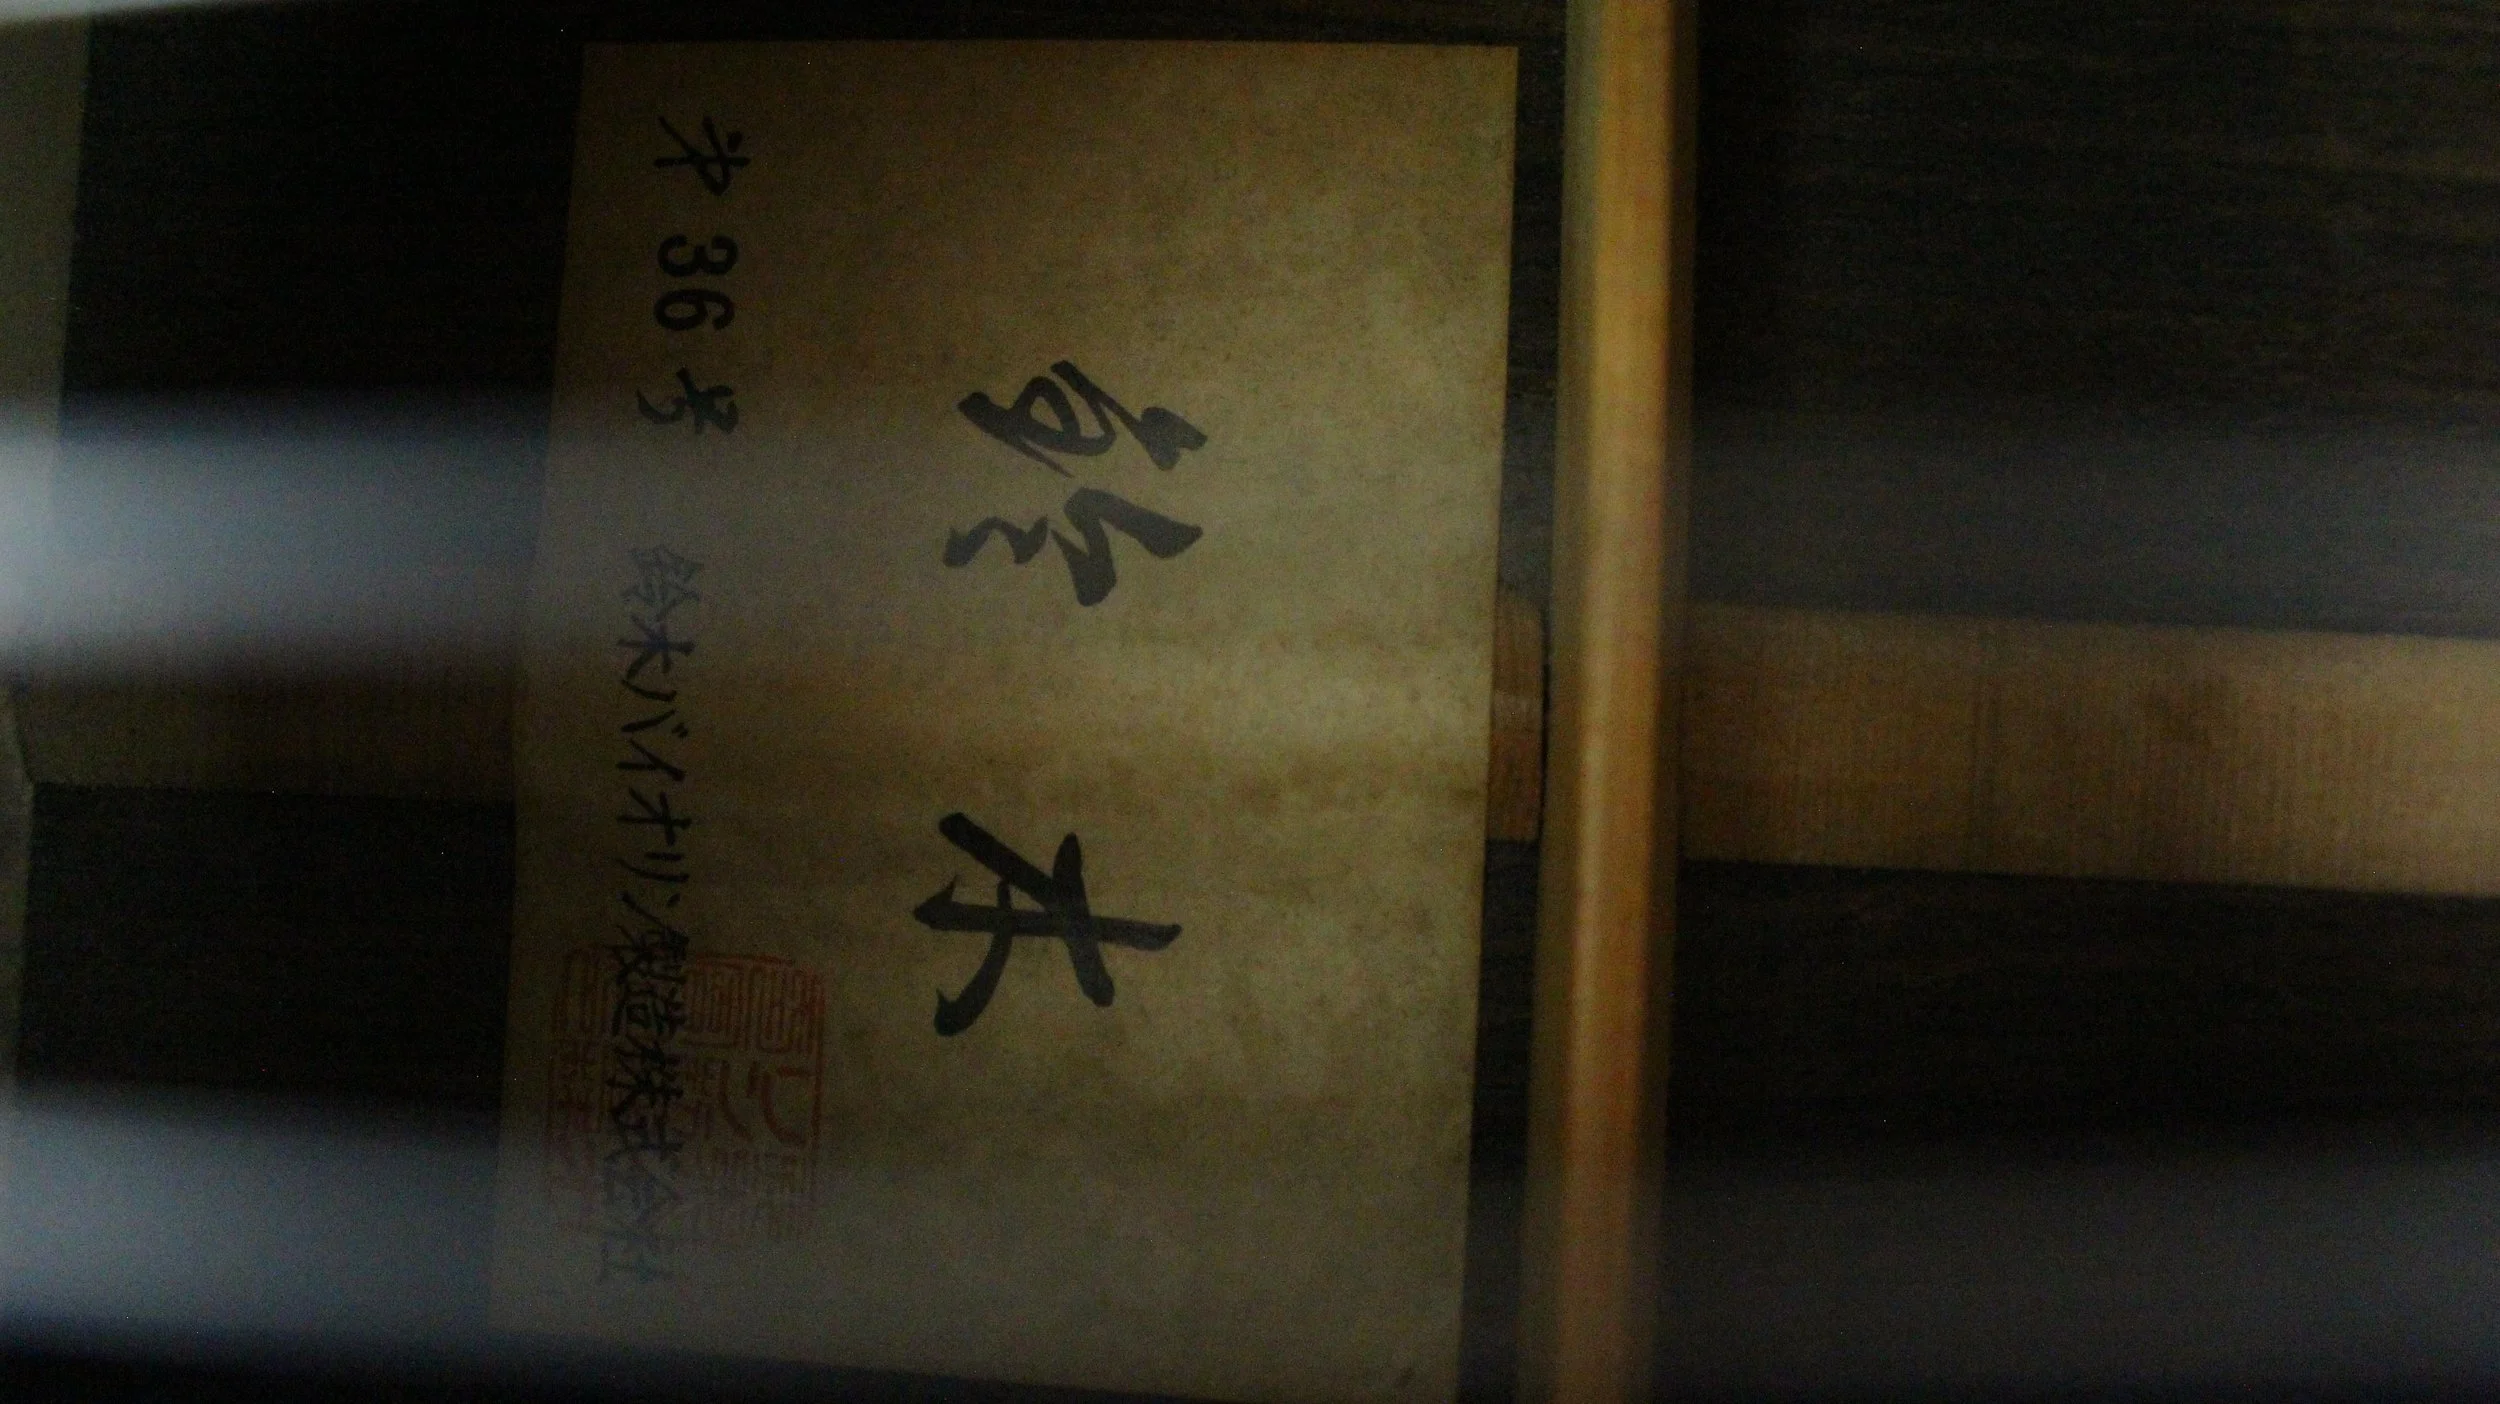 鈴木
才36号 鈴木バイオリン製造株式会社